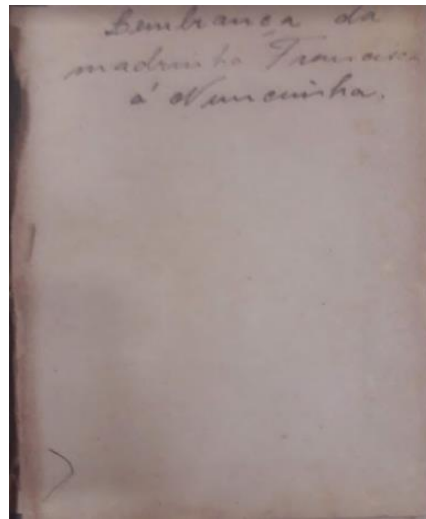 Lembrança da
madrinha Francisca
á Nunciinha.